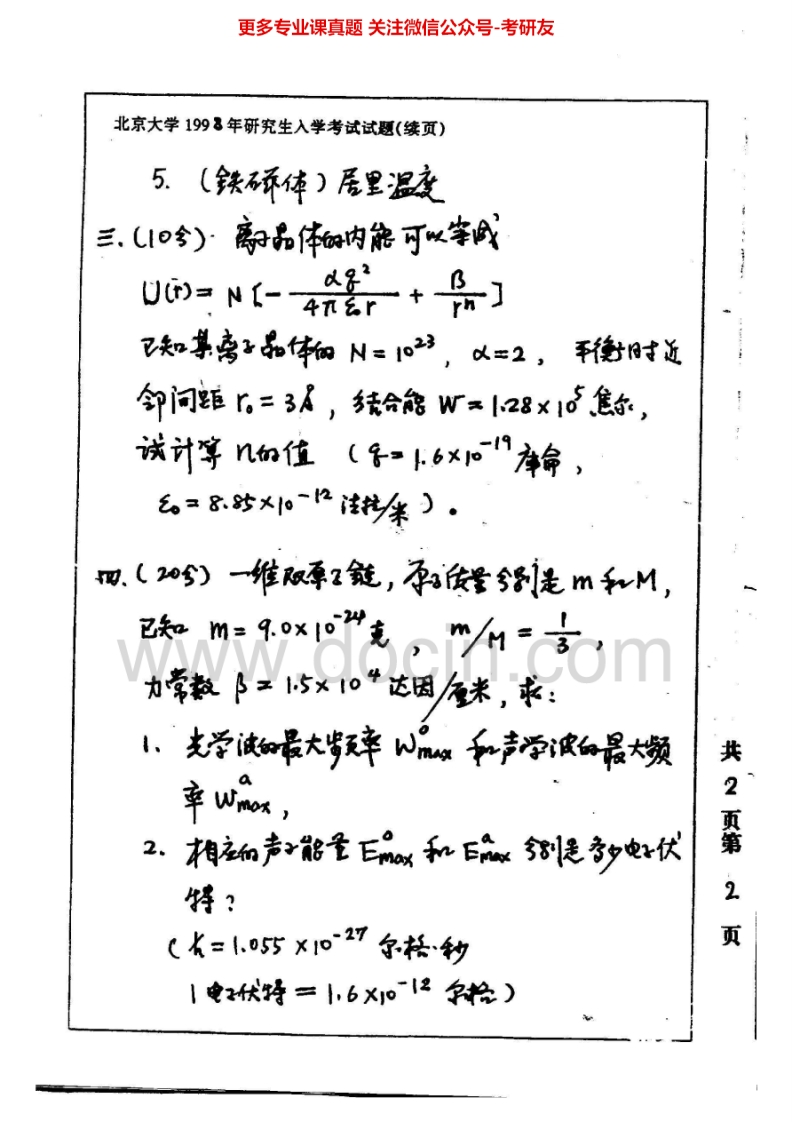 更多专业课真题 关注微信公众号-考研友
北京大学 1998年研究生入学考试试题(续页)
5. (鉄磁体)居里温度
三、(10分) 离子晶体的内能可以写成
U(r) = N [ - αq² / 4πε₀r + β / rⁿ ]
已知某离子晶体的 N = 10²³, α=2, 平衡时近
邻间距 r₀ = 3Å, 结合能 W = 1.28×10⁵ 焦尔,
试计算 n的值 (q = 1.6×10⁻¹⁹ 库仑,
ε₀ = 8.85×10⁻¹² 法拉/米)。
四、(20分) 一维双原子链, 原子质量分别是 m 和 M,
已知 m = 9.0×10⁻²⁴ 克, m/M = 1/3,
力常数 β = 1.5×10⁴ 达因/厘米, 求:
1. 光学波的最大频率 Wᵒmax 和声学波的最大频
率 Wᵃmax,
2. 相应的声子能量 Eᵒmax 和 Eᵃmax 分别是多少电子伏
特?
(ℏ = 1.055 × 10⁻²⁷ 尔格·秒
1 电子伏特 = 1.6×10⁻¹² 尔格)
共2页第2页
www.docin.com